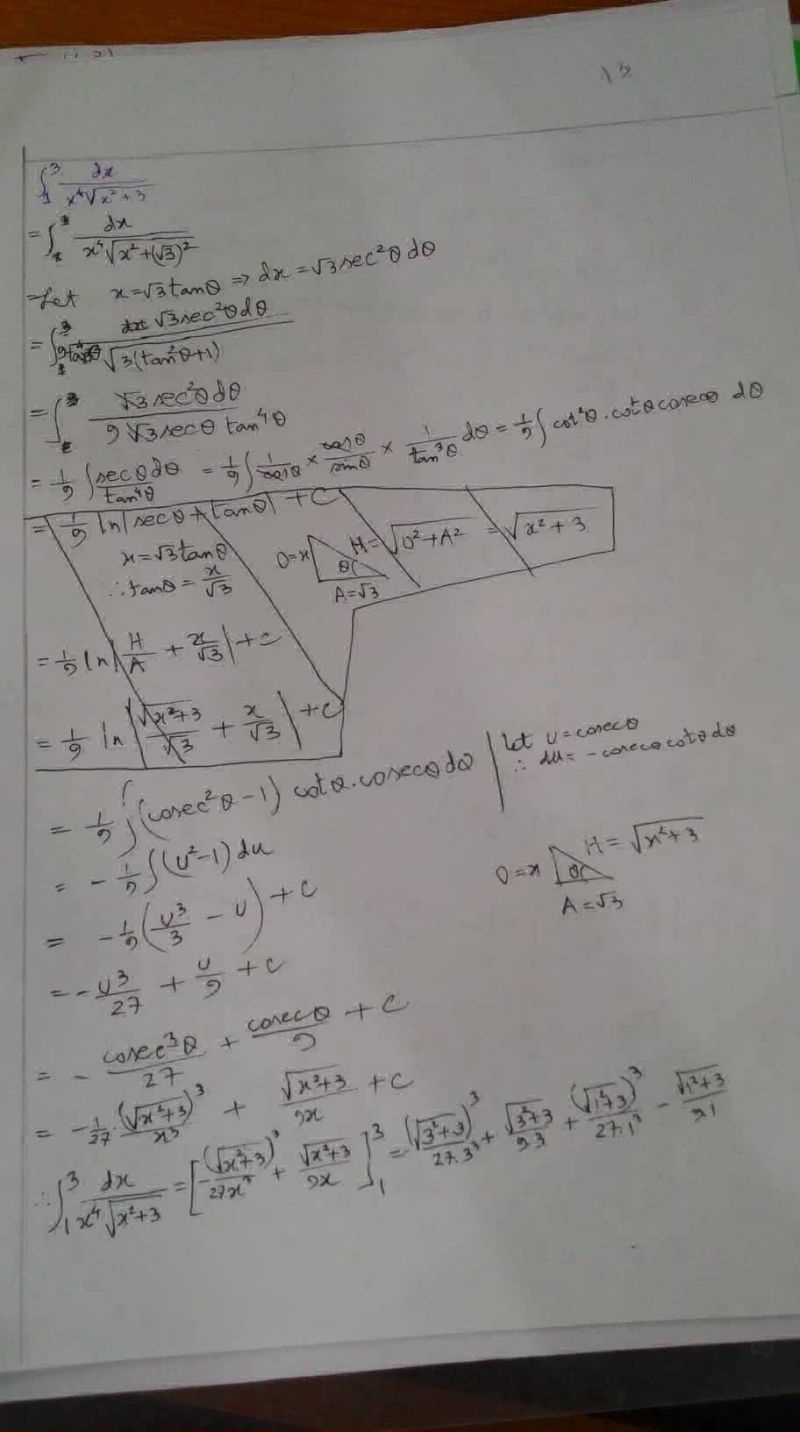 13
∫₁³ dx / (x⁴√(x²+3))
= ∫ dx / (x⁴√(x²+(√3)²))
= Let x=√3tanθ ⇒ dx = √3sec²θdθ
= ∫ √3sec²θdθ / (9tan⁴θ √(3(tan²θ+1)))
= ∫ √3sec²θdθ / (9√3secθ tan⁴θ)
= 1/9 ∫ secθdθ / tan⁴θ = 1/9 ∫ 1/cosθ × cosθ/sinθ × 1/tan³θ dθ = 1/9 ∫ cot²θ.cotθcosecθ dθ
= 1/9 ln|secθ+tanθ| + C
x=√3tanθ
∴ tanθ = x/√3
O=x θ A=√3 H=√(O²+A²) = √(x²+3)
= 1/9 ln|H/A + x/√3| + C
= 1/9 ln|√(x²+3)/√3 + x/√3| + C
= 1/9 ∫(cosec²θ-1) cotθ.cosecθdθ
let u=cosecθ
∴ du= -cosecθcotθdθ
= -1/9 ∫(u²-1)du
O=x θ H=√(x²+3)
A=√3
= -1/9 (u³/3 - u) + C
= -u³/27 + u/9 + C
= - cosec³θ/27 + cosecθ/9 + C
= -1/27 . (√(x²+3))³/x³ + √(x²+3)/9x + C
∴ ∫₁³ dx / (x⁴√(x²+3)) = [-(√(x²+3))³/27x³ + √(x²+3)/9x]₁³ = (√(3²+3))³/27.3³ + √(3²+3)/9.3 + (√(1²+3))³/27.1³ - √(1²+3)/9.1